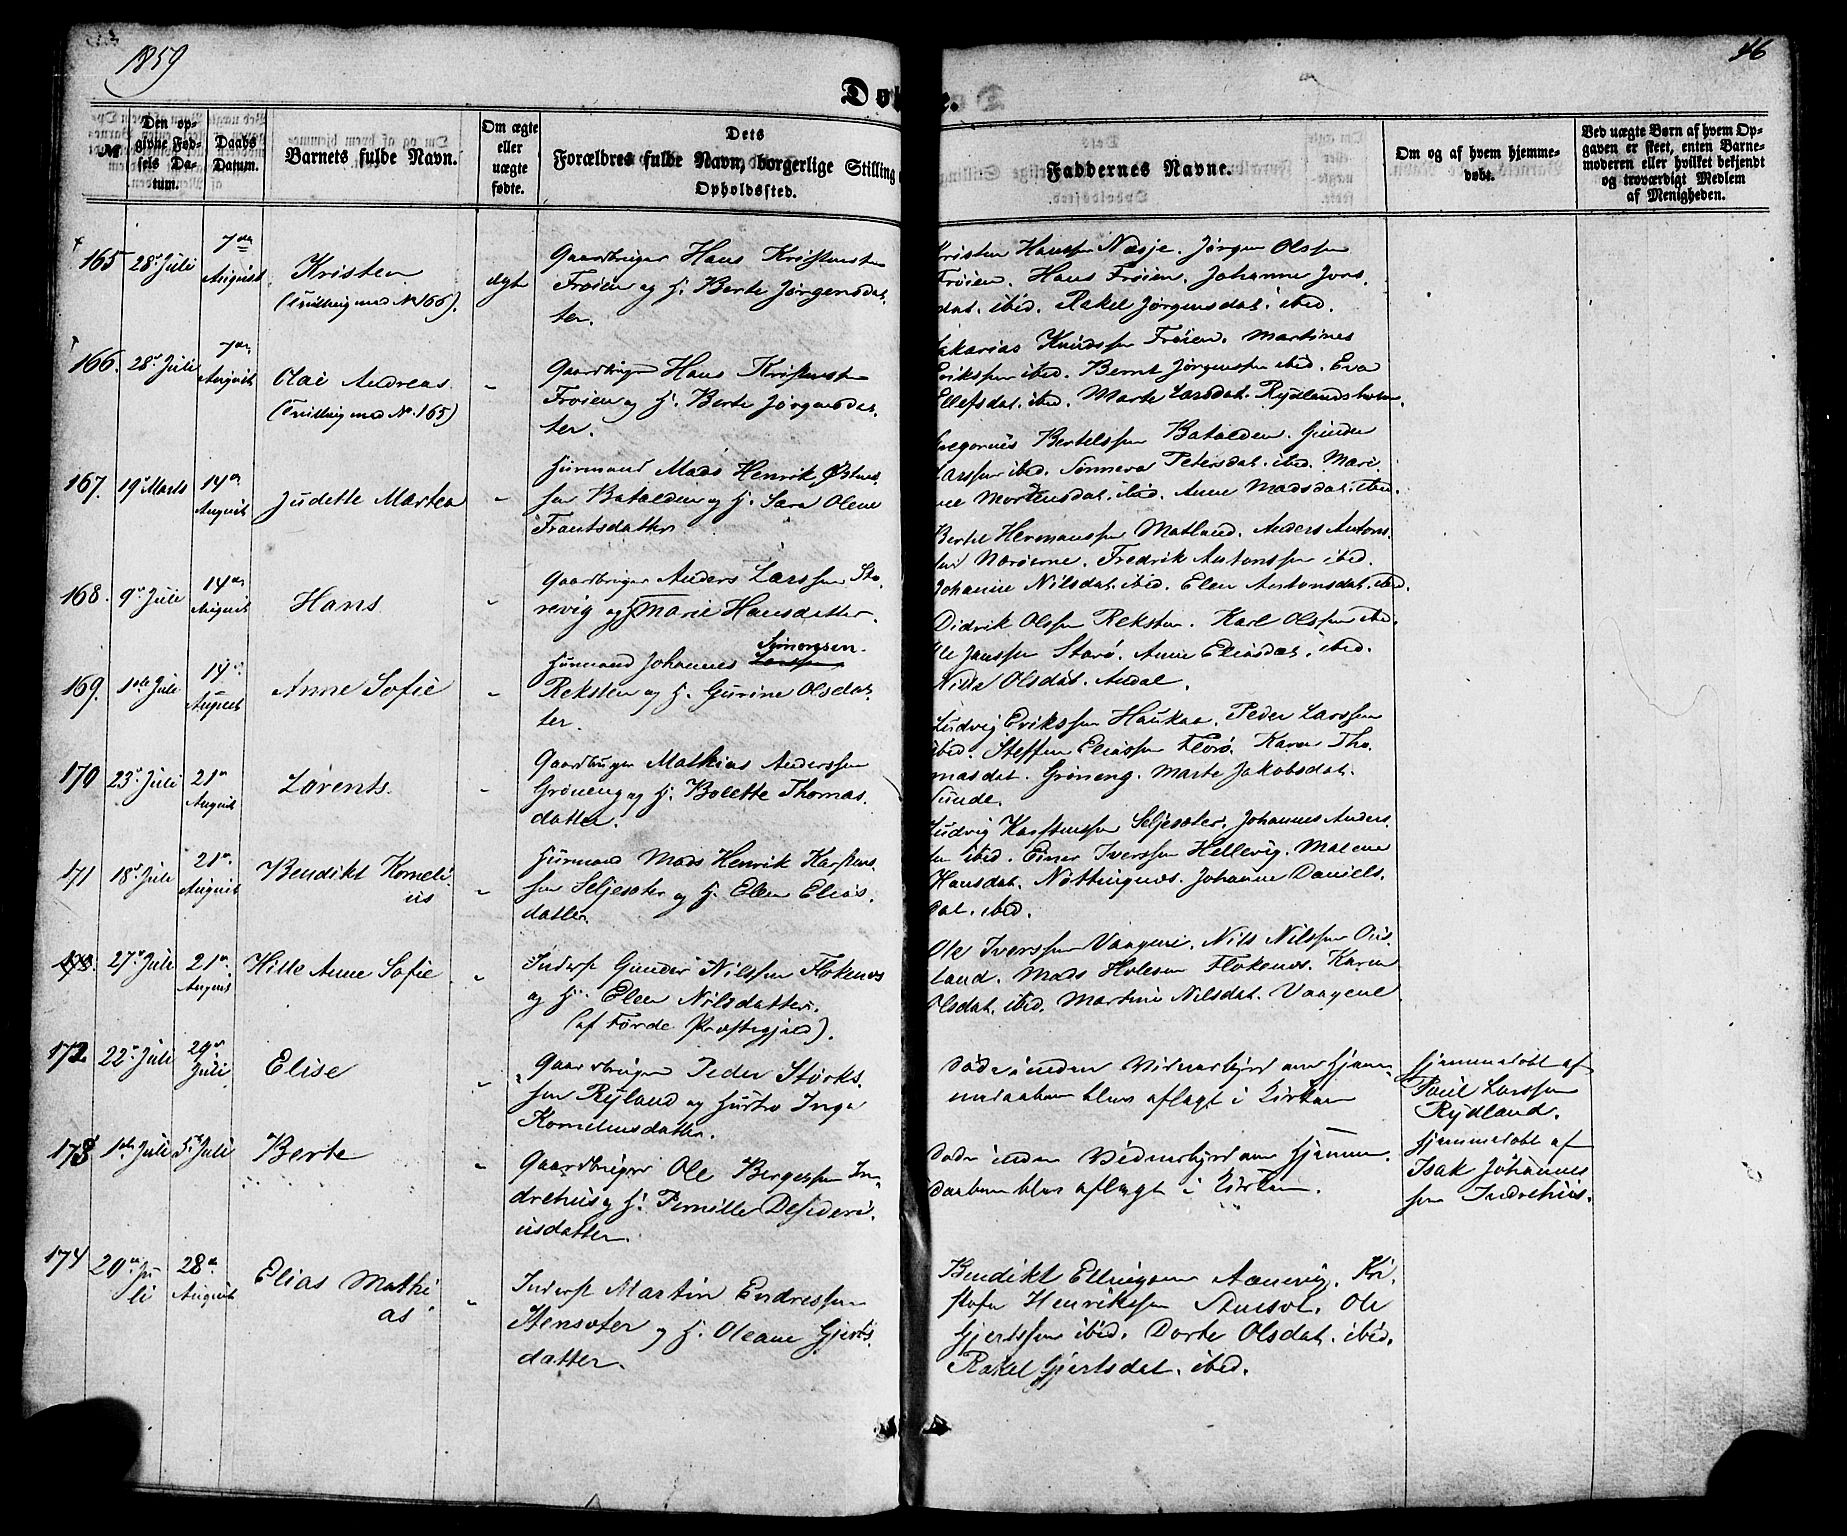 1859
46
Døbte.
№
Den opgivne Fødsels Datum.
Daabs Datum.
Barnets fulde Navn.
Om ægte eller uægte fødte.
Dets Forældres fulde Navn, borgerlige Stilling
Opholdssted.
Faddernes Navne.
Om og af hvem hjemmedøbt.
Ved uægte Børn af hvem Opgaven er skeet, enten Barnemoderen eller hvilket bekjendt og troværdigt Medlem af Menigheden.
165 28de Juli 7de August Kristen (Tvilling med No 166). ægt
Gaardbruger Hans Kristensen
Frøien og H. Berte Jørgensdat-
ter.
Kristen Hansen Nesje. Jørgen Olssen
Frøien. Hans Frøien. Johanne Jons
dat. ibid. Rakel Jørgensdat. ibid.
166. 28de Juli 7de August Olai Andreas (Tvilling med No. 165) "
Gaardbruger Hans Kristensen
Frøien og H. Berte Jørgensdat-
ter.
Sakarias Knudssen Frøien. Martines
Erikssen ibid. Bernt Jørgenssen ibid. Eva
Ellefsdat. ibid. Marte Larsdat. Rydlandsholm.
167. 19de Marts 14de August Judette Martea "
Huusmand Mads Henrik
sen Batalden og H. Sara Olene
Frantsdatter
Gregorius Bertelssen Batalden. Gunder
Larssen ibid. Sønneva Petersdat. ibid. Mari-
ne Mortensdat. ibid. Anne Madsdat. ibid.
168. 9de Juli 14de August Hans "
Gaardbruger Anders Larssen Sto-
revig og H. Marie Hansdatter.
Bertel Hermanssen Matland. Anders Antons-
sen Nærøerne. Fredrik Antonssen ibid.
Johanne Nilsdat. ibid. Elen Antonsdat. ibid.
169. 1ste Juli 14de August Anne Sofie "
Huusmand Johannes Simonssen
Reksten og H. Gurine Olsdat-
ter.
Didrik Olssen Reksten. Karl Olssen ibid.
Ole Janssen Starø. Anne Eliasdat. ibid.
Olsdat. Andal.
170 23de Juli 21de August Lorents. "
Gaardbruger Mathias Anderssen
Grøneng og H. Bolette Thomas-
datter.
Ludvig Erikssen Haukaa. Peder Larssen
ibid. Steffen Eliassen Florø. Karen Tho-
masdat. Grøneng. Marte Jakobsdat.
Sunde.
171 18de Juli 21de August Bendikt Korneli-
us "
Huusmand Mads Henrik Karstens-
sen Seljesæter og H. Elen Elias-
datter.
Ludvig Karstenssen Seljesæter. Johannes Anders-
sen ibid. Einer Iverssen Hellevig. Malene
Hansdat. Nøttingnes. Johanne Daniels-
dat. ibid.
27de Juli 21de August Hille Anne Sofie "
Inderst Gunder Nilssen Flokenes
og H. Elen Nilsdatter.
(af Førde Præstegjeld).
Ole Iverssen Vaagene. Nils Nilssen
land. Mads Flokenes. Karen
Olsdat. ibid. Martine Nilsdat. Vaagene
172. 22de Juli 29de Juli Elise "
Gaardbruger Peder Størks-
sen Ryland og Hustru Inge
Korneliusdatter.
Døde inden Vidnesbyrd om Hjem-
medaaben blev aflagt i Kirken
Hjemmedøbt af
Paul Larssen
Rydland.
173 1ste Juli 5te Juli Berte "
Gaardbruger Ole Bergessen In-
drehus og H. Pernille Desideri-
usdatter.
Døde inden Vidnesbyrd om Hjemme-
daaben blev aflagt i Kirken.
Hjemmedøbt af
Isak Johannes-
sen Indrehus.
174 20de Ju-
li 28de August Elias Mathi-
as "
Inderst Martin Endressen
Stensæter og H. Oleane Gjerts-
datter.
Bendikt Ellingsen Aanevig. Kri-
stofer Henrikssen Ole
Gjertssen ibid. Dorte Olsdat. ibid.
Rakel Gjertsdat. ibid.